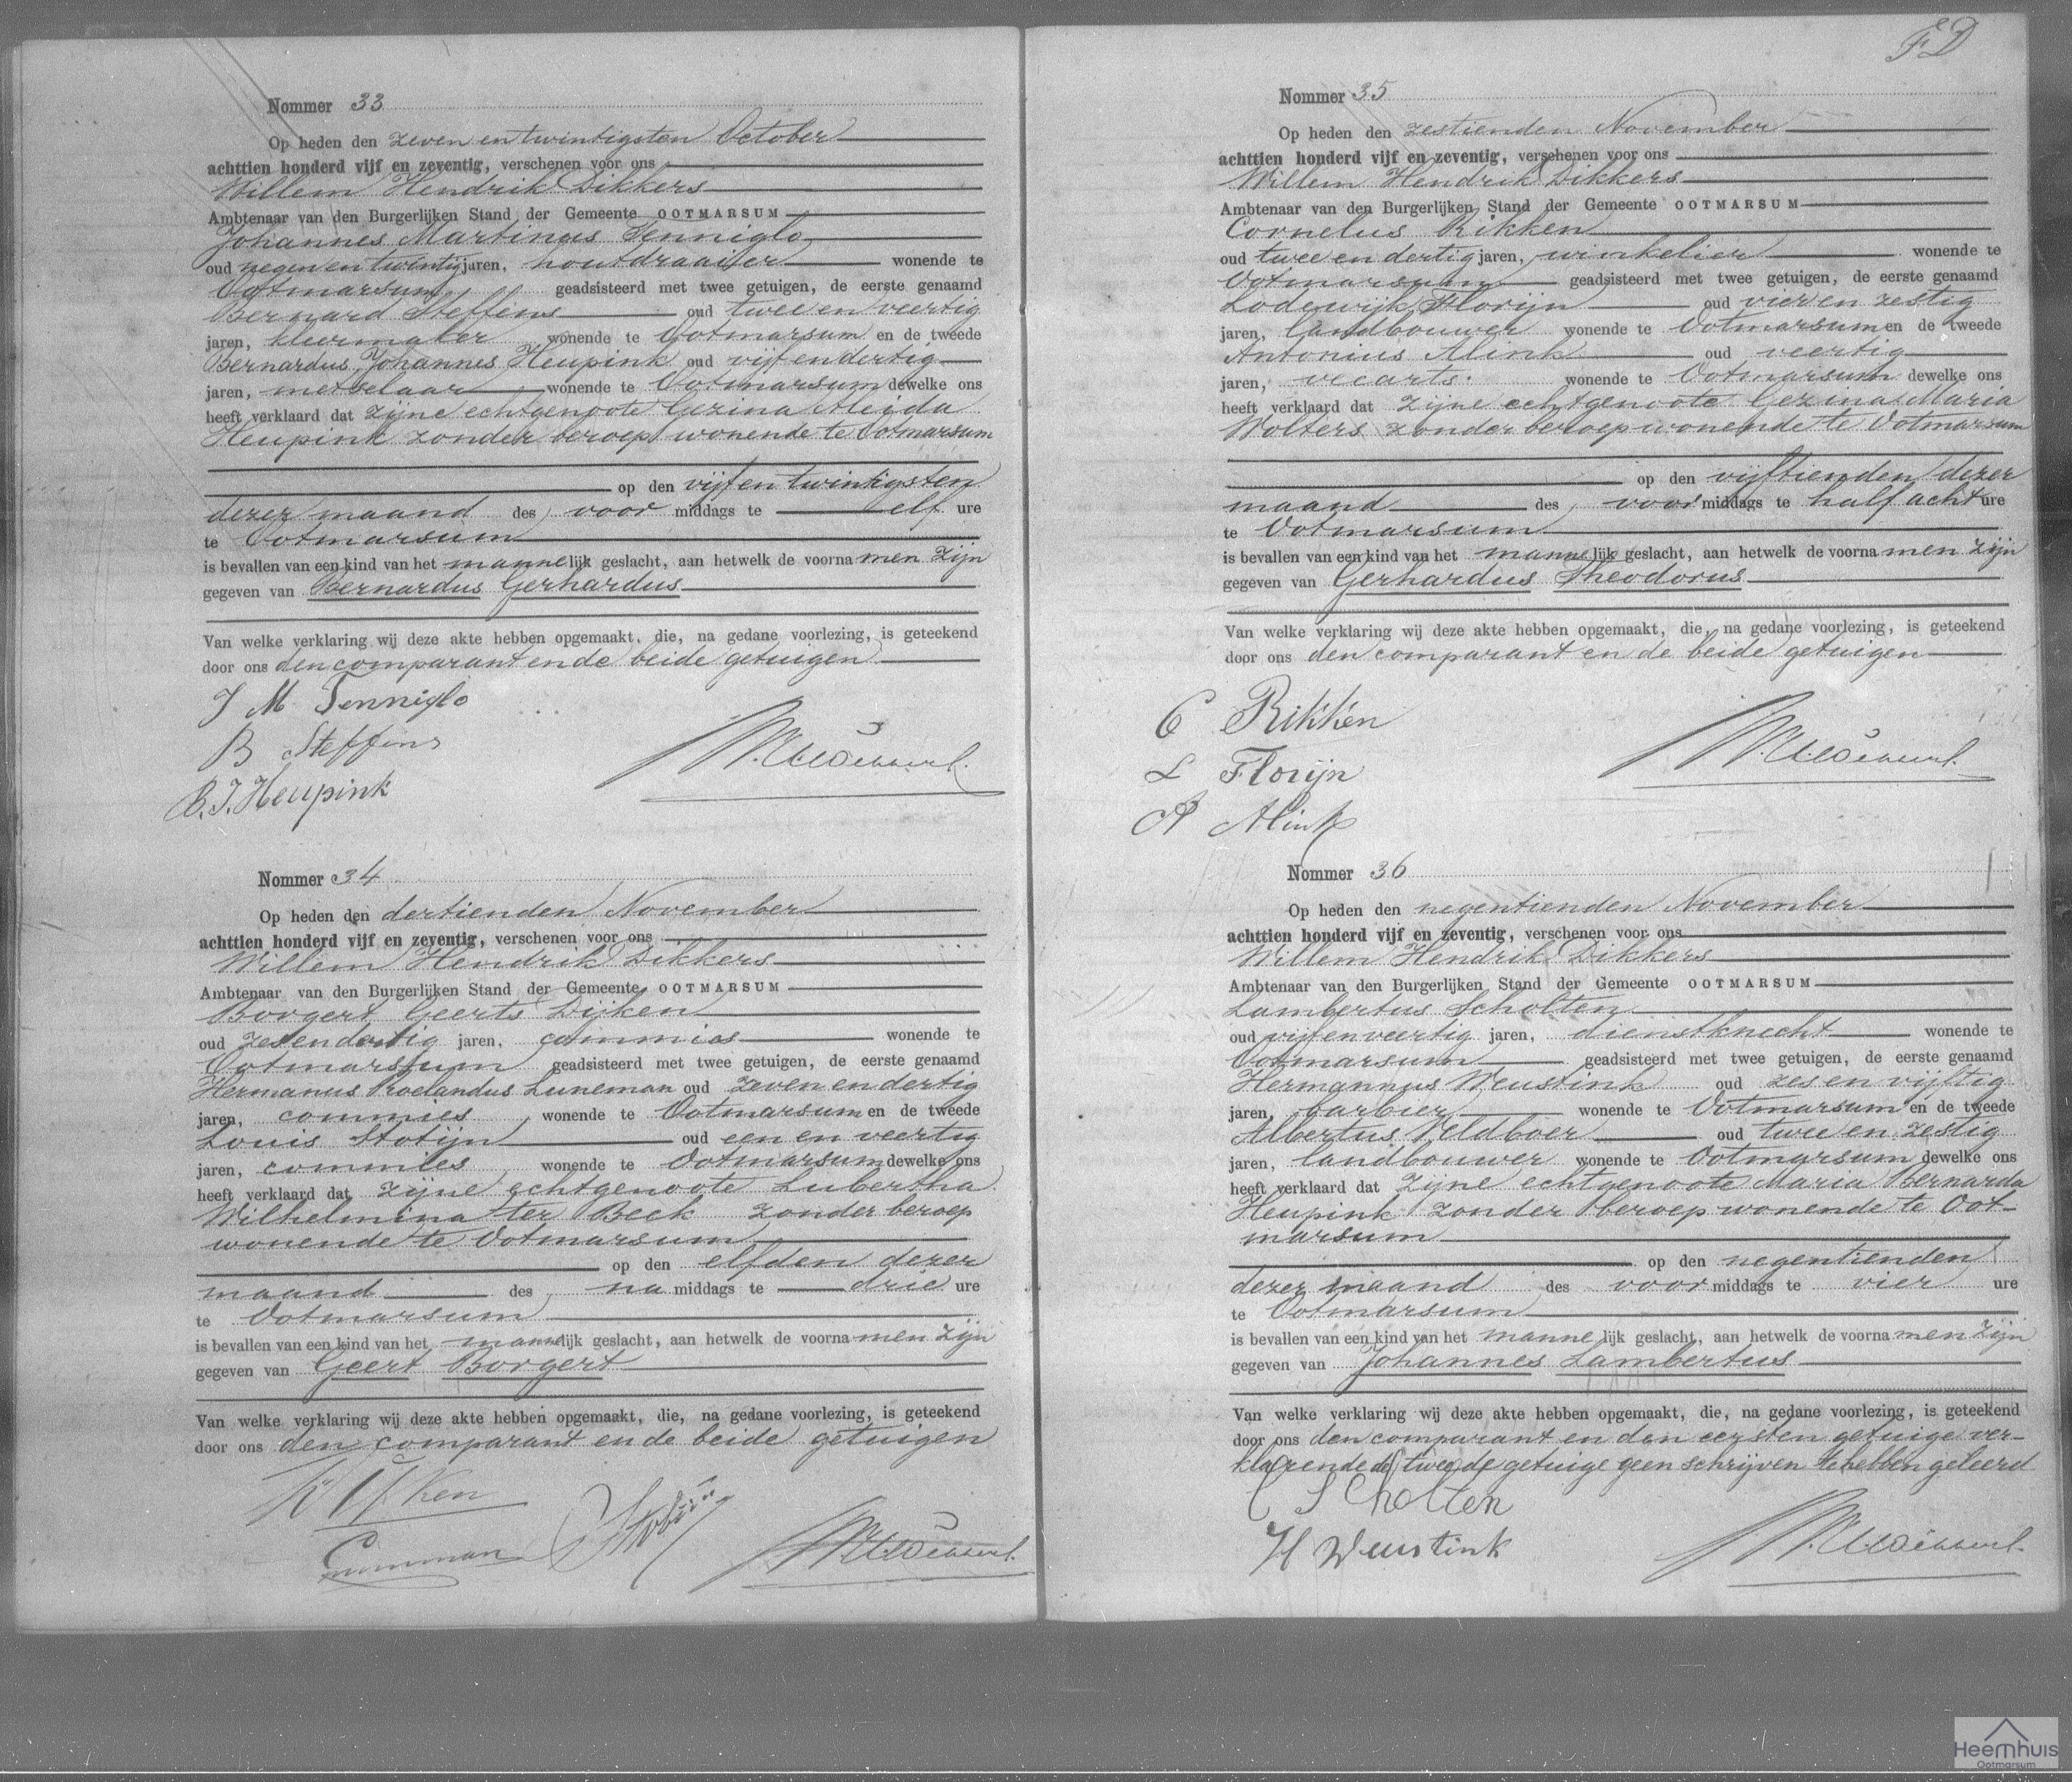 Nommer 33
Op heden den zeven en twintigsten October
achttien honderd vijf en zeventig, verschenen voor ons
Willem Hendrik Dikkers
Ambtenaar van den Burgerlijken Stand der Gemeente OOTMARSUM
Johannes Martinus Tenniglo
oud negen en twintig jaren, houtdraaijer wonende te
Ootmarsum geadsisteerd met twee getuigen, de eerste genaamd
Bernard Steffens oud twee en veertig
jaren, kleermaker wonende te Ootmarsum en de tweede
Bernardus Johannes Heupink oud vijf en dertig
jaren, metselaar wonende te Ootmarsum dewelke ons
heeft verklaard dat zijne echtgenoote Gezina Aleida
Heupink zonder beroep wonende te Ootmarsum
op den vijf en twintigsten
dezer maand des voor middags te elf ure
te Ootmarsum
is bevallen van een kind van het mannelijk geslacht, aan hetwelk de voornamen zijn
gegeven van Bernardus Gerhardus
Van welke verklaring wij deze akte hebben opgemaakt, die, na gedane voorlezing, is geteekend
door ons den comparant en de beide getuigen
J M Tenniglo
B Steffens
B. J. Heupink
Nommer 34
Op heden den dertienden November
achttien honderd vijf en zeventig, verschenen voor ons
Willem Hendrik Dikkers
Ambtenaar van den Burgerlijken Stand der Gemeente OOTMARSUM
Borgert Geerts Dijken
oud zes en dertig jaren, commies wonende te
Ootmarsum geadsisteerd met twee getuigen, de eerste genaamd
Hermanus Roelandus Luneman oud zeven en dertig
jaren, commies wonende te Ootmarsum en de tweede
Louis Stotijn oud een en veertig
jaren, commies wonende te Ootmarsum dewelke ons
heeft verklaard dat zijne echtgenoote Lubertha
Wilhelmina ter Beek zonder beroep
wonende te Ootmarsum
op den elfden dezer
maand des na middags te drie ure
te Ootmarsum
is bevallen van een kind van het mannelijk geslacht, aan hetwelk de voornamen zijn
gegeven van Geert Borgert
Van welke verklaring wij deze akte hebben opgemaakt, die, na gedane voorlezing, is geteekend
door ons den comparant en de beide getuigen
FD
Nommer 35
Op heden den zestienden November
achttien honderd vijf en zeventig, verschenen voor ons
Willem Hendrik Dikkers
Ambtenaar van den Burgerlijken Stand der Gemeente OOTMARSUM
Cornelus Rikken
oud twee en dertig jaren, winkelier wonende te
Ootmarsum geadsisteerd met twee getuigen, de eerste genaamd
Lodewijk Florijn oud vier en zestig
jaren, landbouwer wonende te Ootmarsum en de tweede
Antonius Alink oud veertig
jaren, veearts. wonende te Ootmarsum dewelke ons
heeft verklaard dat zijne echtgenoote Gezina Maria
Wolters zonder beroep wonende te Ootmarsum
op den vijftienden dezer
maand des voor middags te half acht ure
te Ootmarsum
is bevallen van een kind van het mannelijk geslacht, aan hetwelk de voornamen zijn
gegeven van Gerhardus Theodorus
Van welke verklaring wij deze akte hebben opgemaakt, die, na gedane voorlezing, is geteekend
door ons den comparant en de beide getuigen
C Rikken
L Florijn
A Alink
Nommer 36
Op heden den negentienden November
achttien honderd vijf en zeventig, verschenen voor ons
Willem Hendrik Dikkers
Ambtenaar van den Burgerlijken Stand der Gemeente OOTMARSUM
Lambertus Scholten
oud vijf en veertig jaren, dienstknecht wonende te
Ootmarsum geadsisteerd met twee getuigen, de eerste genaamd
Hermannus Weustink oud zes en vijftig
jaren, barbier wonende te Ootmarsum en de tweede
Albertus Veldboer oud twee en zestig
jaren, landbouwer wonende te Ootmarsum dewelke ons
heeft verklaard dat zijne echtgenoote Maria Bernarda
Heupink zonder beroep wonende te Oot-
marsum
op den negentienden
dezer maand des voor middags te vier ure
te Ootmarsum
is bevallen van een kind van het mannelijk geslacht, aan hetwelk de voornamen zijn
gegeven van Johannes Lambertus
Van welke verklaring wij deze akte hebben opgemaakt, die, na gedane voorlezing, is geteekend
door ons den comparant en den eersten getuige ver-
klarende de tweede getuige geen schrijven te hebben geleerd
L Scholten
H Weustink
Heemhuis
Ootmarsum